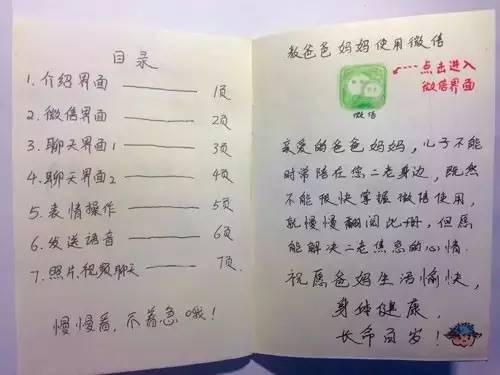 目录
1. 介绍界面 —— 1页
2. 微信界面 —— 2页
3. 聊天界面1 —— 3页
4. 聊天界面2 —— 4页
5. 表情操作 —— 5页
6. 发送語音 —— 6页
7. 照片,视频聊天 —— 7页
慢慢看,不着急哦!
教爸爸妈妈使用微信
点击进入
微信界面
微信
亲爱的爸爸妈妈,儿子不能
时常陪在您二老身边,既然
不能很快掌握微信使用,
就慢慢翻阅此册,但愿
能解决二老焦急的心情.
祝愿爸妈生活愉快,
身体健康,
长命百岁!